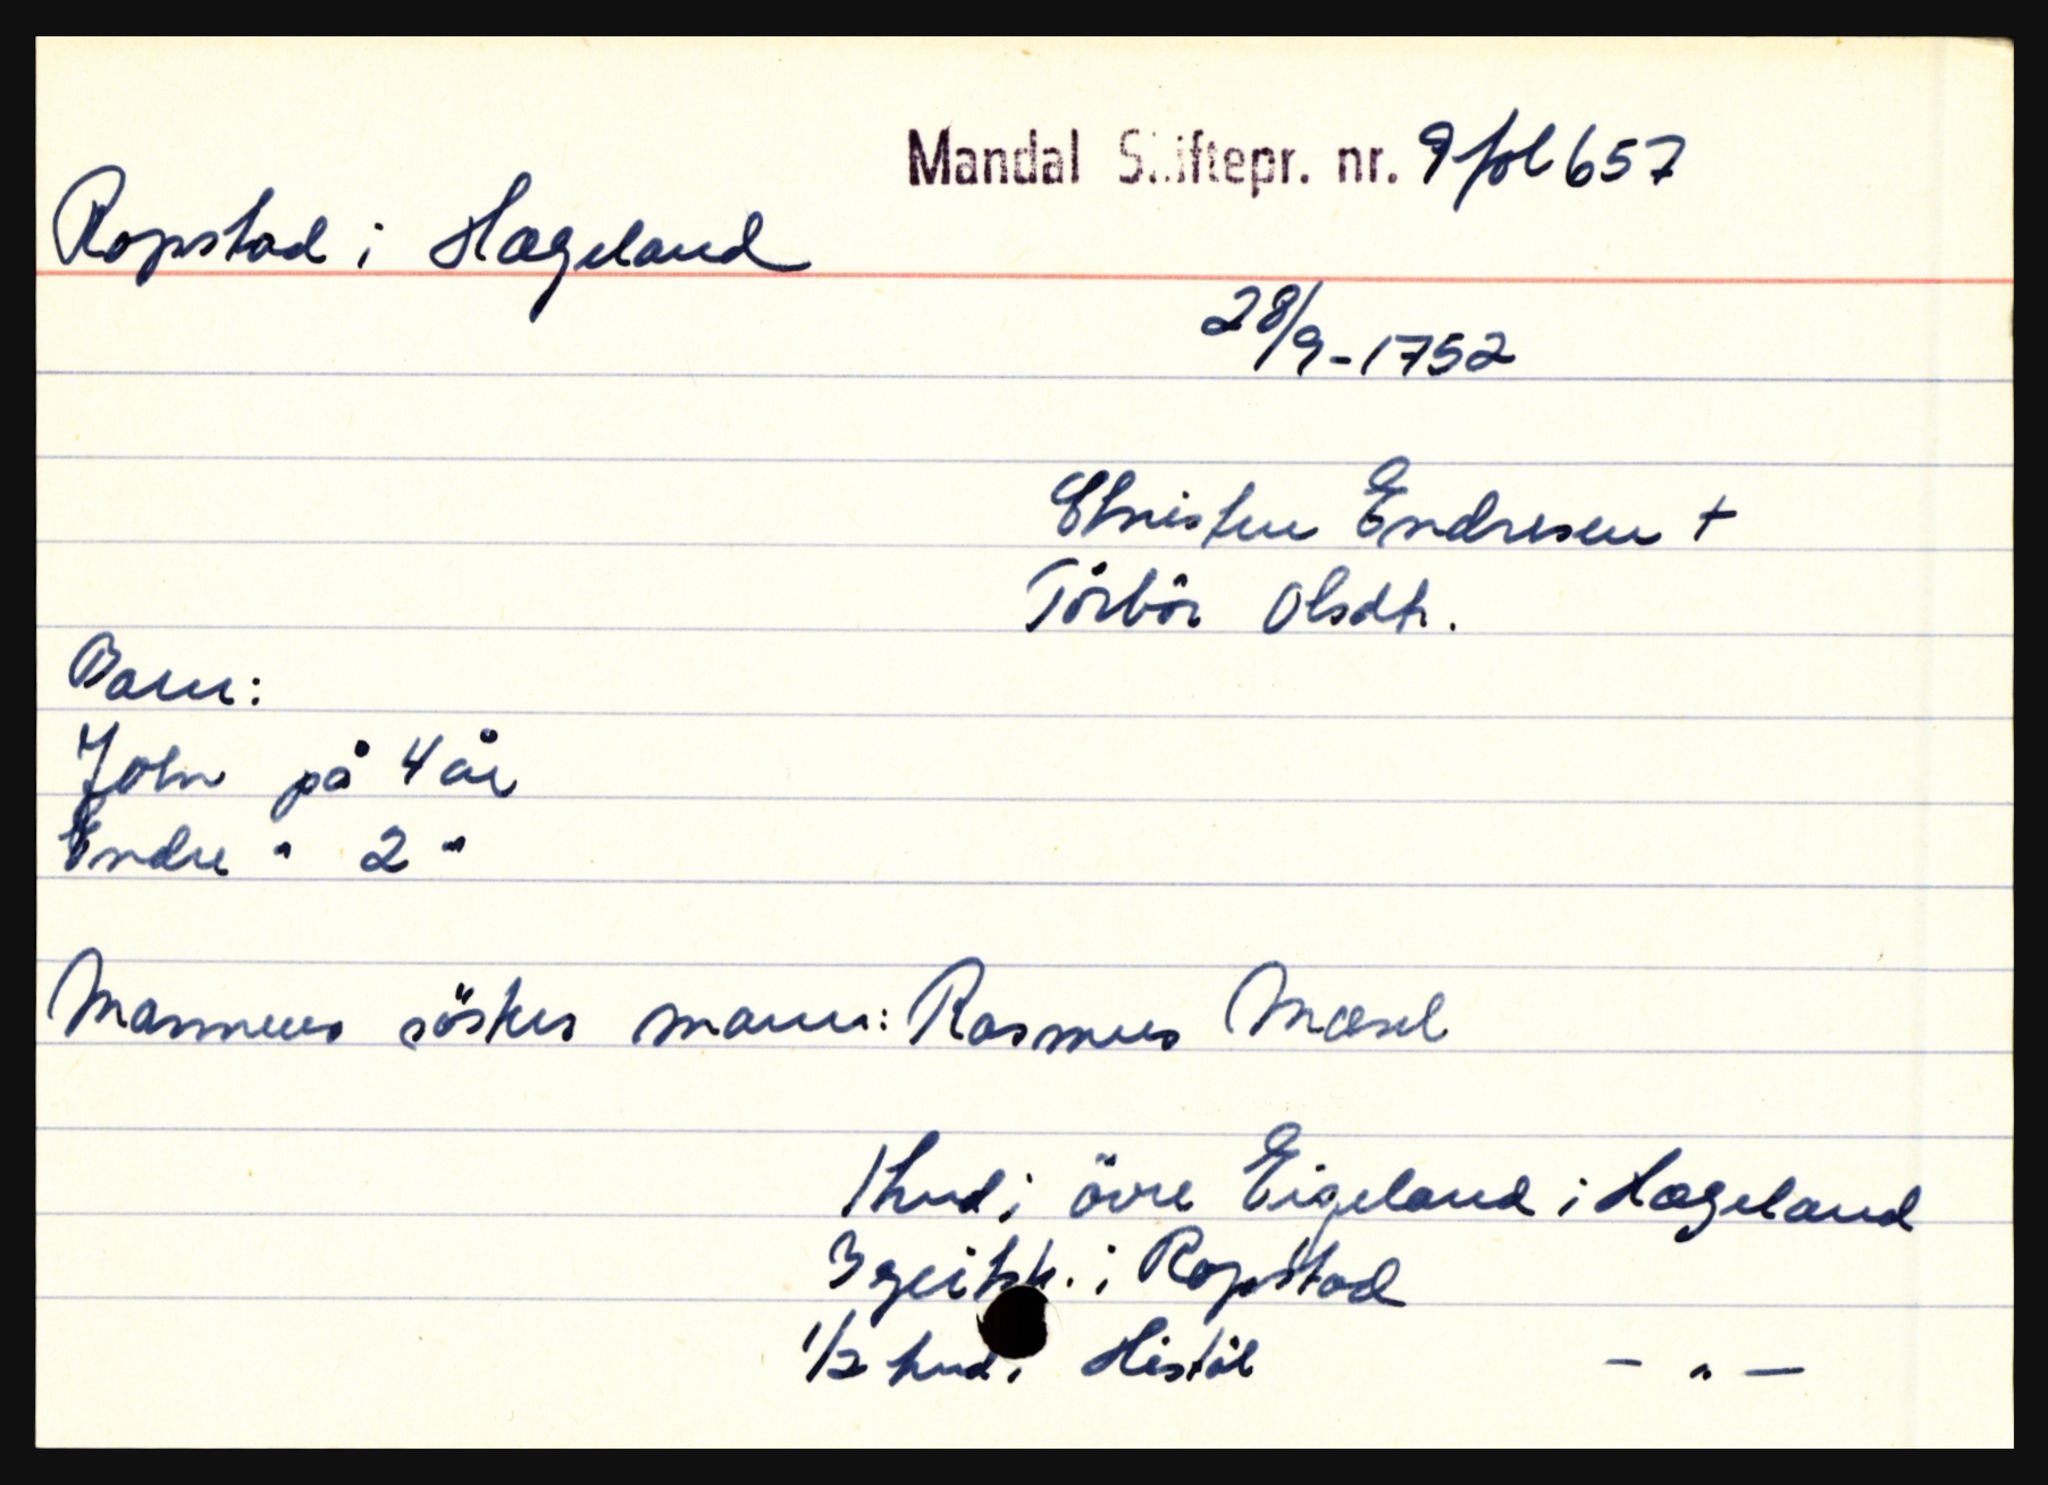 Mandal Skiftepr. nr. 9 fol 657
Ropstad i Hægeland
28/9-1752
Christen Endresen +
Törbör Olsdtr.
Barn:
John på 4 år
Endre " 2 "
Mannens søsters mann: Rasmus Mæsel
1 hud i övre Eigeland i Hægeland
3 geitsk. i Ropstad
1/2 hud i Histöl - " -